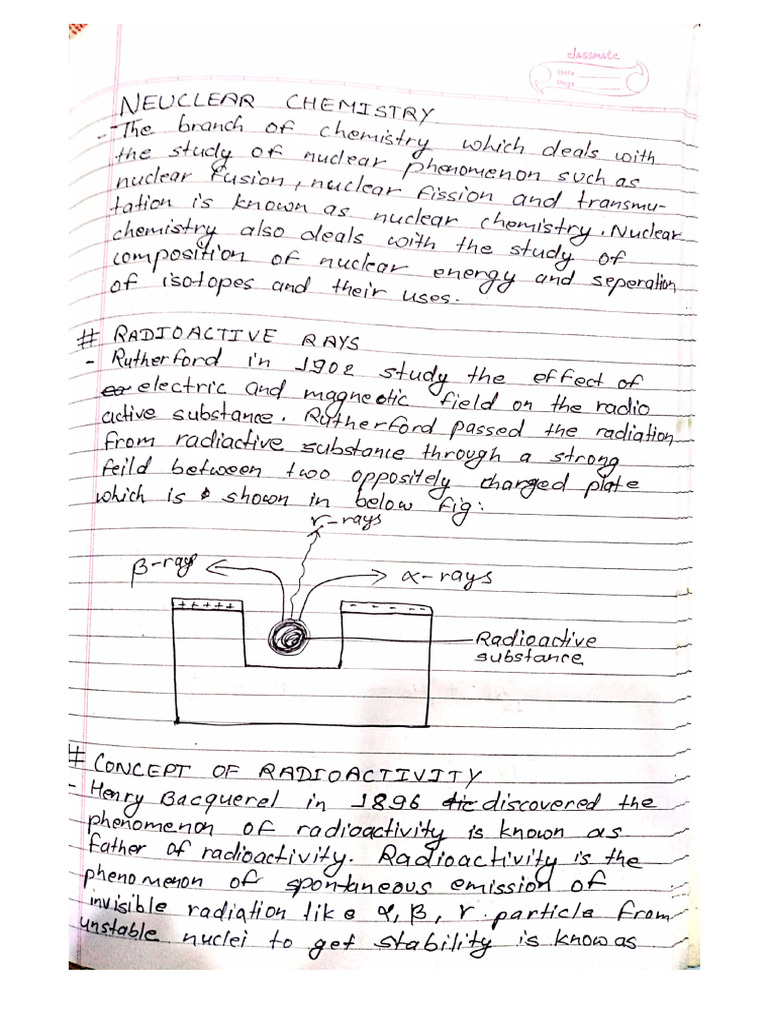 classmate
Date
Page
NEUCLEAR CHEMISTRY
- The branch of chemistry which deals with
the study of nuclear phenomenon such as
nuclear fusion, nuclear fission and transmu-
tation is known as nuclear chemistry. Nuclear
chemistry also deals with the study of
composition of nuclear energy and seperation
of isotopes and their uses.
# RADIOACTIVE RAYS
- Rutherford in 1902 study the effect of
electric and magneotic field on the radio
active substance. Rutherford passed the radiation
from radiactive substance through a strong
feild between two oppositely charged plate
which is shown in below fig:
r-rays
β-ray
α-rays
+ + + + +
- - - -
Radioactive
substance
# CONCEPT OF RADIOACTIVITY
- Henry Bacquerel in 1896 discovered the
phenomenon of radioactivity is known as
father of radioactivity. Radioactivity is the
phenomenon of spontaneous emission of
invisible radiation like α, β, r particle from
unstable nuclei to get stability is know as